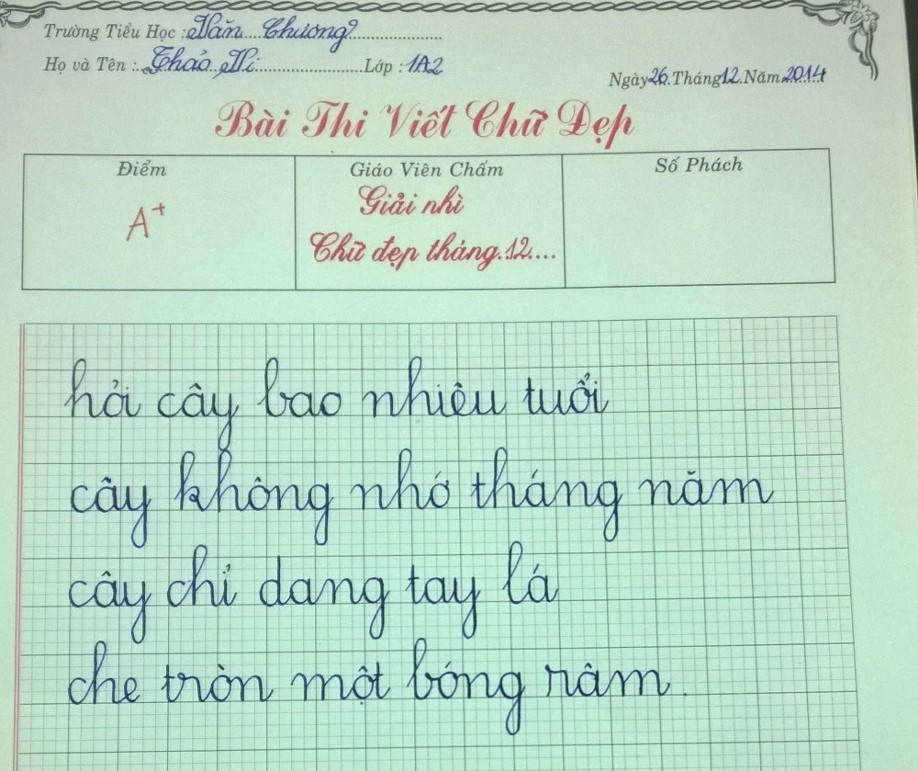 Trường Tiểu Học : Văn Chương
Họ và Tên : Thảo Vi Lớp : 1A2
Ngày 26 Tháng 12 Năm 2014
Bài Thi Viết Chữ Đẹp
Điểm Giáo Viên Chấm Số Phách
A+ Giải nhì
Chữ đẹp tháng 12....
hỏi cây bao nhiêu tuổi
cây không nhớ tháng năm
cây chỉ dang tay lá
che tròn một bóng râm.